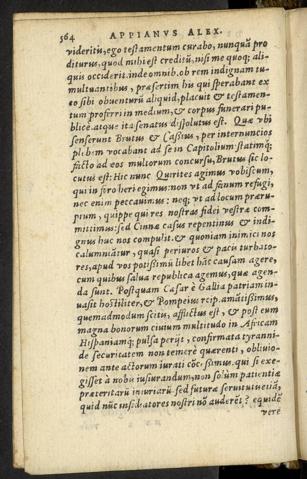 564 APPIANVS ALEX.
videritis, ego testamentum curabo, nunquā pro
diturus, quod mihi est creditū, nisi me quoq; ali-
quis occiderit. inde omnib. ob rem indignam tu-
multuantibus, præsertim his qui sperabant ex
eo sibi obuenturū aliquid, placuit & testamen-
tum proferri in medium, & corpus funerari pu-
blice. atque ita senatus dissolutus est. Quæ vbi
senserunt Brutus & Cassius, per internuncios
plebem vocabant ad se in Capitolium: statimq;
facto ad eos multorum concursu, Brutus sic lo-
cutus est: Hic nunc Quirites agimus vobiscum,
qui in foro heri egimus: non vt ad fanum refugi,
nec enim peccauimus: neq; vt ad locum præru-
ptum, quippe qui res nostras fidei vestræ com-
mittimus: sed Cinnæ casus repentinus & indi-
gnus huc nos compulit. & quoniam inimici nos
calumniātur, quasi periuros & pacis turbato-
res, apud vos potissimū libet hāc causam agere,
cum quibus salua republica agemus, quæ agen-
da sunt. Postquam Cæsar è Gallia patriam in-
uasit hostiliter, & Pompeius reip. amātissimus,
quemadmodum scitis, afflictus est, & post eum
magna bonorum ciuium multitudo in Africam
Hispaniamq; pulsa perijt, confirmata tyranni-
de securitatem non temerè quærenti, obliuio-
nem ante actorum iurati cōcessimus. qui si exe-
gisset à nobis iusiurandum, non solùm patientiæ
præteritarū iniuriarū sed futuræ seruitutis etiā,
quid nūc insidiatores nostri nō auderēt? equidē
verè